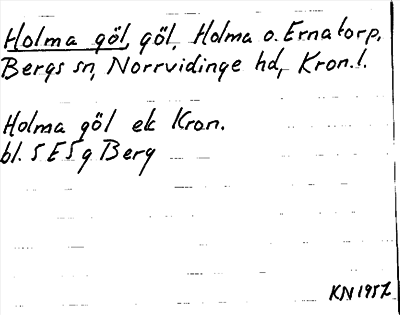 Holma göl, göl, Holma o. Ernatorp,
Bergs sn, Norrvidinge hd, Kron.l.
Holma göl ek Kron.
bl. 5 E 5 g Berg
KN 1957